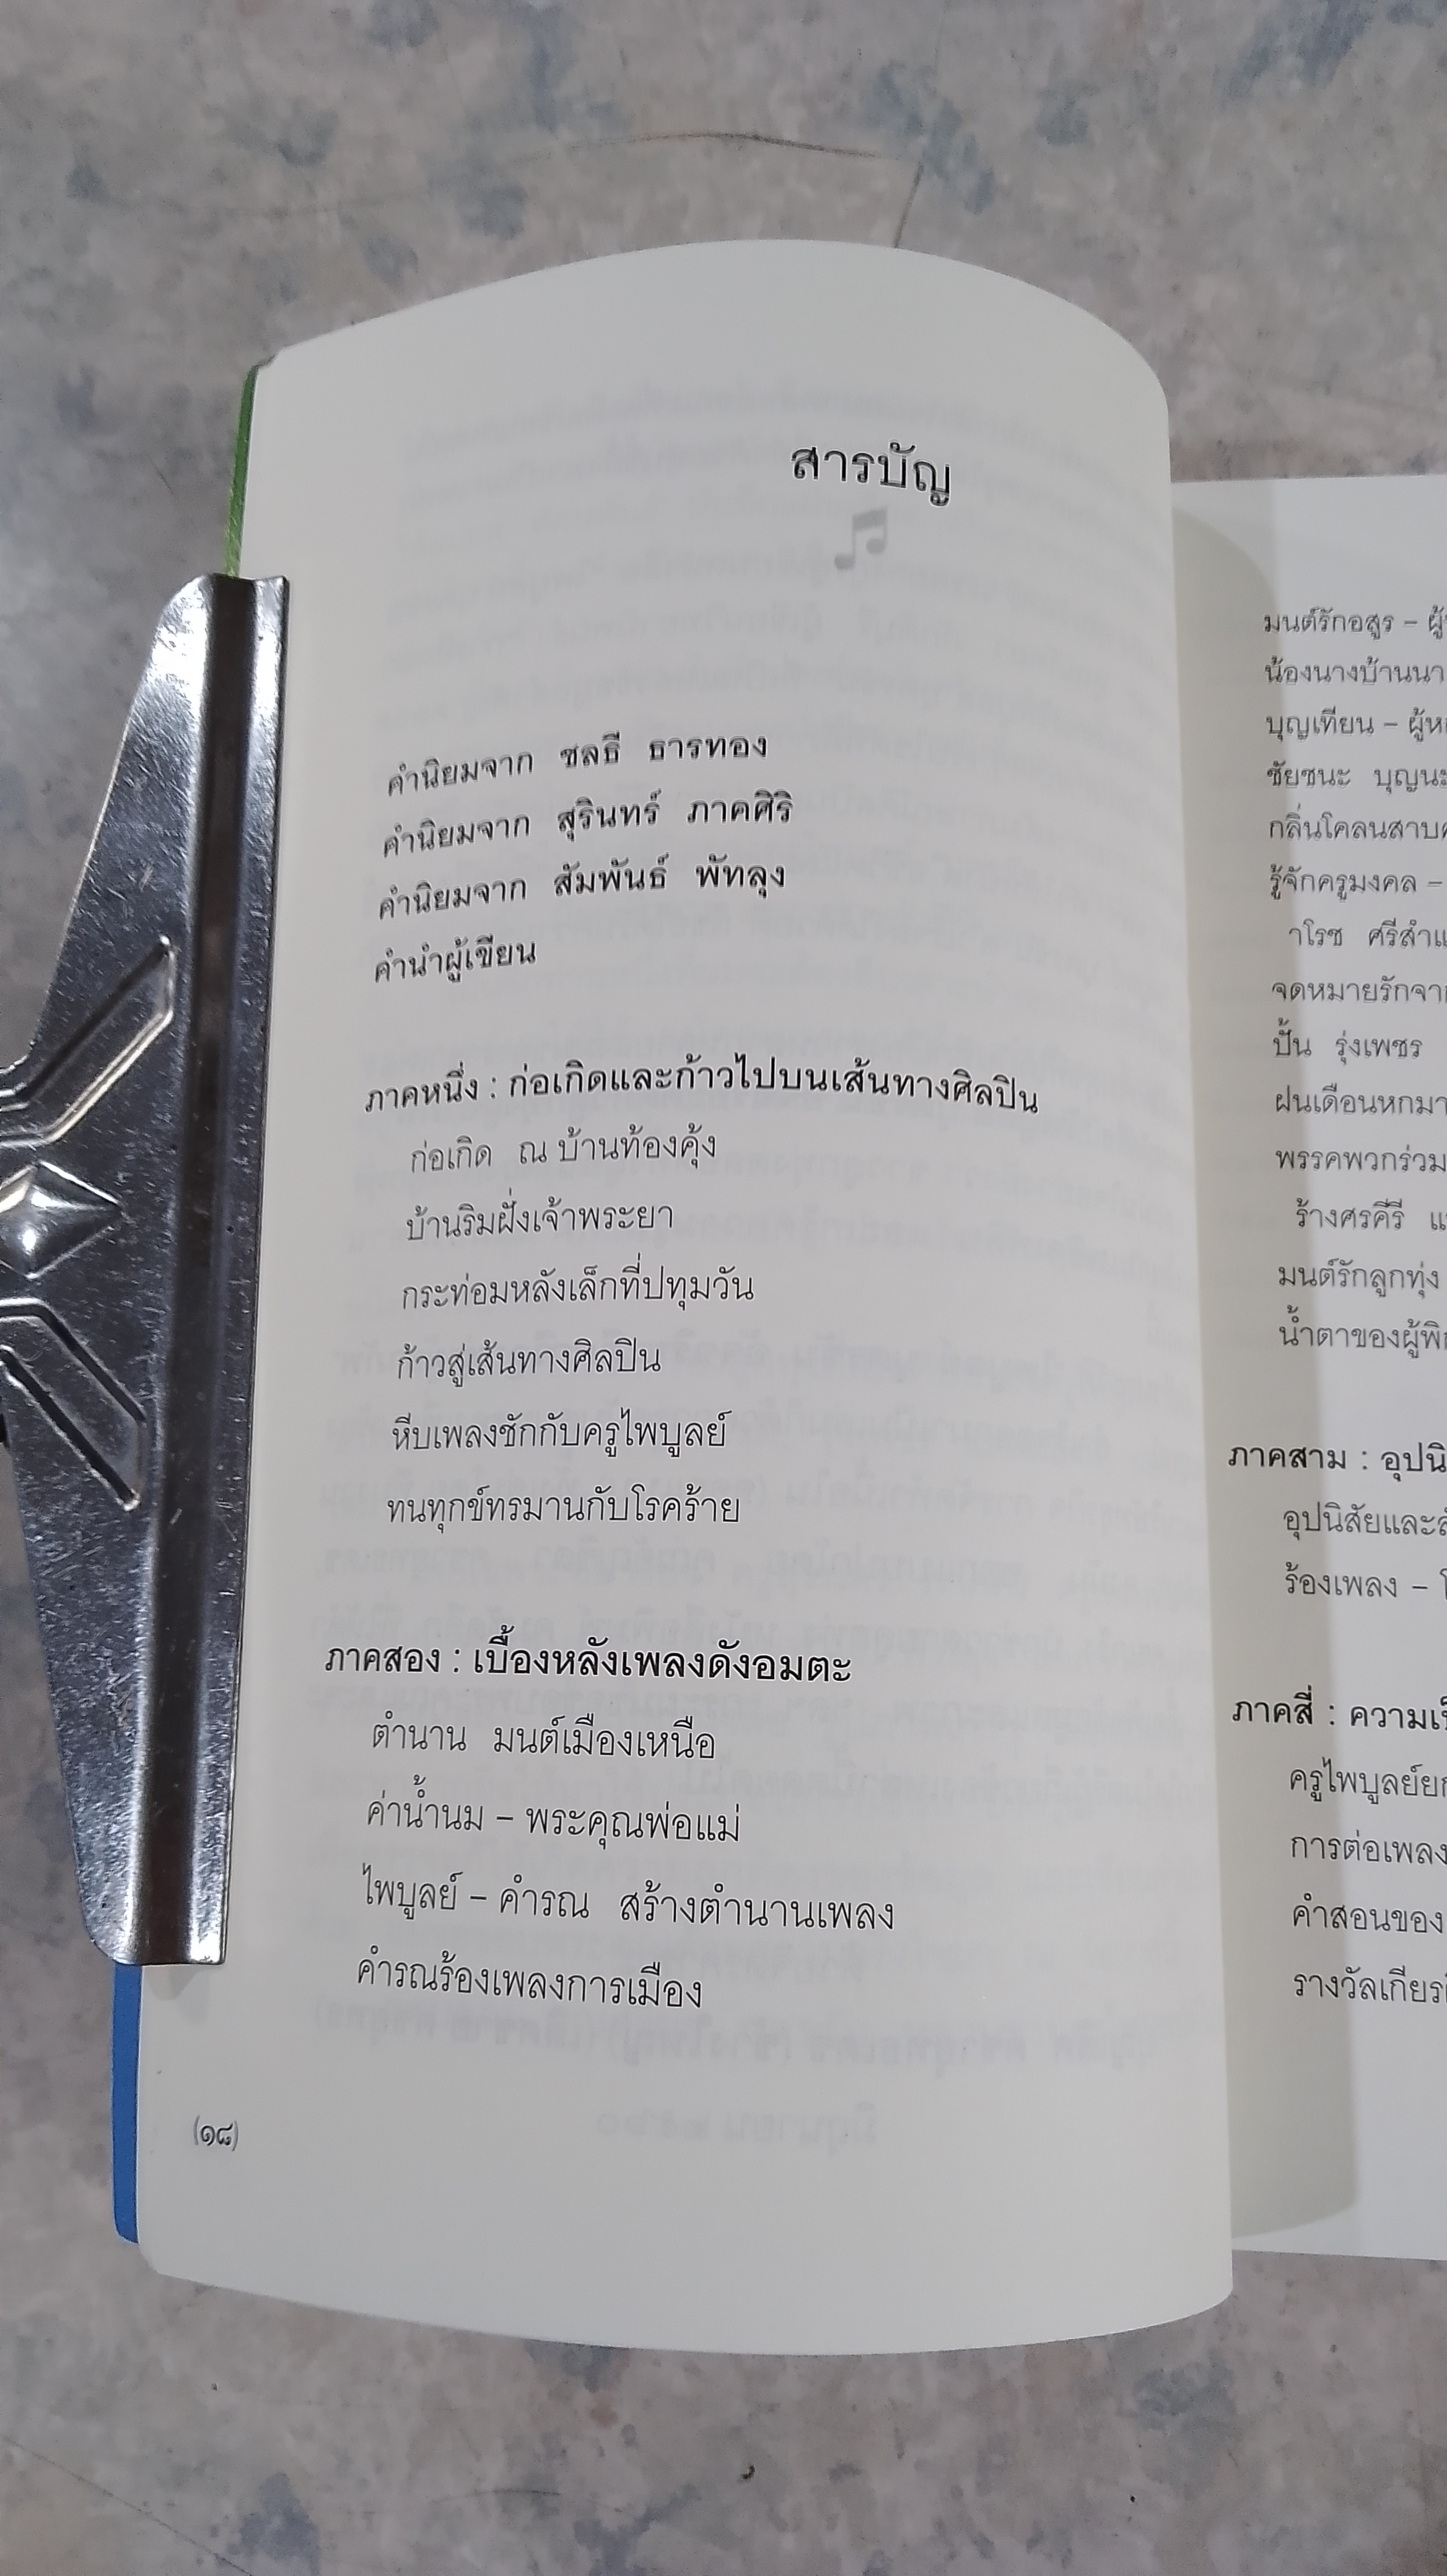 สารบัญ
คำนิยมจาก ชลธี ธารทอง
คำนิยมจาก สุรินทร์ ภาคศิริ
คำนิยมจาก สัมพันธ์ พัทลุง
คำนำผู้เขียน
ภาคหนึ่ง : ก่อเกิดและก้าวไปบนเส้นทางศิลปิน
ก่อเกิด ณ บ้านท้องคุ้ง
บ้านริมฝั่งเจ้าพระยา
กระท่อมหลังเล็กที่ปทุมวัน
ก้าวสู่เส้นทางศิลปิน
หีบเพลงชักกับครูไพบูลย์
ทนทุกข์ทรมานกับโรคร้าย
ภาคสอง : เบื้องหลังเพลงดังอมตะ
ตำนาน มนต์เมืองเหนือ
ค่าน้ำนม – พระคุณพ่อแม่
ไพบูลย์ – คำรณ สร้างตำนานเพลง
คำรณร้องเพลงการเมือง
(๑๘)
มนต์รักอสูร –
น้องนางบ้านนา
บุญเทียน –
ชัยชนะ
กลิ่นโคลนสาบ
รู้จักครูมงคล –
ศรี
จดหมายรักจาก
ปั้น รุ่งเพชร
ฝนเดือนหกมา
พรรคพวกร่วม
ร้างศรคีรี
มนต์รักลูกทุ่ง
น้ำตาของผู้
ภาคสาม :
อุปนิสัยและ
ร้องเพลง –
ภาคสี่ : ความ
ครูไพบูลย์
การต่อเพลง
คำสอนของ
รางวัล